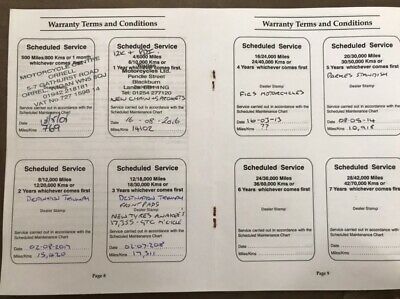 Warranty Terms and Conditions
Scheduled Service
500 Miles/800 Kms or 1 month
whichever comes first
MOTORCYCLE
ORRELL
5-7 GATHURST ROAD
ORRELL WIGAN WN5
01942 218181
VAT No 727 1598 14
Date
Miles/Kms 769
Scheduled Service
12K + PDI
4/6000 Miles
6/10,000 Kms or
1 Year whichever comes first
Motorcycles Ltd.
Pendle Street
Blackburn
Tel: 01254
NEW CHAIN + SPROCKETS
Service carried out in accordance with the
Scheduled Maintenance Chart
Date 16-08-2016
Miles/Kms 14102
Scheduled Service
8/12,000 Miles
12/20,000 Kms or
2 Years whichever comes first
DESTINATION TRIUMPH
Dealer Stamp
Service carried out in accordance with the
Scheduled Maintenance Chart
Date 02-08-2017
Miles/Kms 15,620
Scheduled Service
12/18,000 Miles
18/30,000 Kms or
3 Years whichever comes first
DESTINATION TRIUMPH
FRONT PADS
Dealer Stamp
NEW TYRES
Service carried out in accordance with the
Scheduled Maintenance Chart
Date 02-07-2018
Miles/Kms 17,311
Page 8
Warranty Terms and Conditions
Scheduled Service
16/24,000 Miles
24/40,000 Kms or
4 Years whichever comes first
Dealer Stamp
MOTORCYCLES
Service carried out in accordance with the
Scheduled Maintenance Chart
Date 16-03-13
Miles/Kms ??
Scheduled Service
20/30,000 Miles
30/50,000 Kms or
5 Years whichever comes first
STANDISH
Dealer Stamp
Service carried out in accordance with the
Scheduled Maintenance Chart
Date 08-05-14
Miles/Kms 10,918
Scheduled Service
24/36,000 Miles
36/60,000 Kms or
6 Years whichever comes first
Dealer Stamp
Service carried out in accordance with the
Scheduled Maintenance Chart
Date
Miles/Kms
Scheduled Service
28/42,000 Miles
42/70,000 Kms or
7 Years whichever comes first
Dealer Stamp
Service carried out in accordance with the
Scheduled Maintenance Chart
Date
Miles/Kms
Page 9